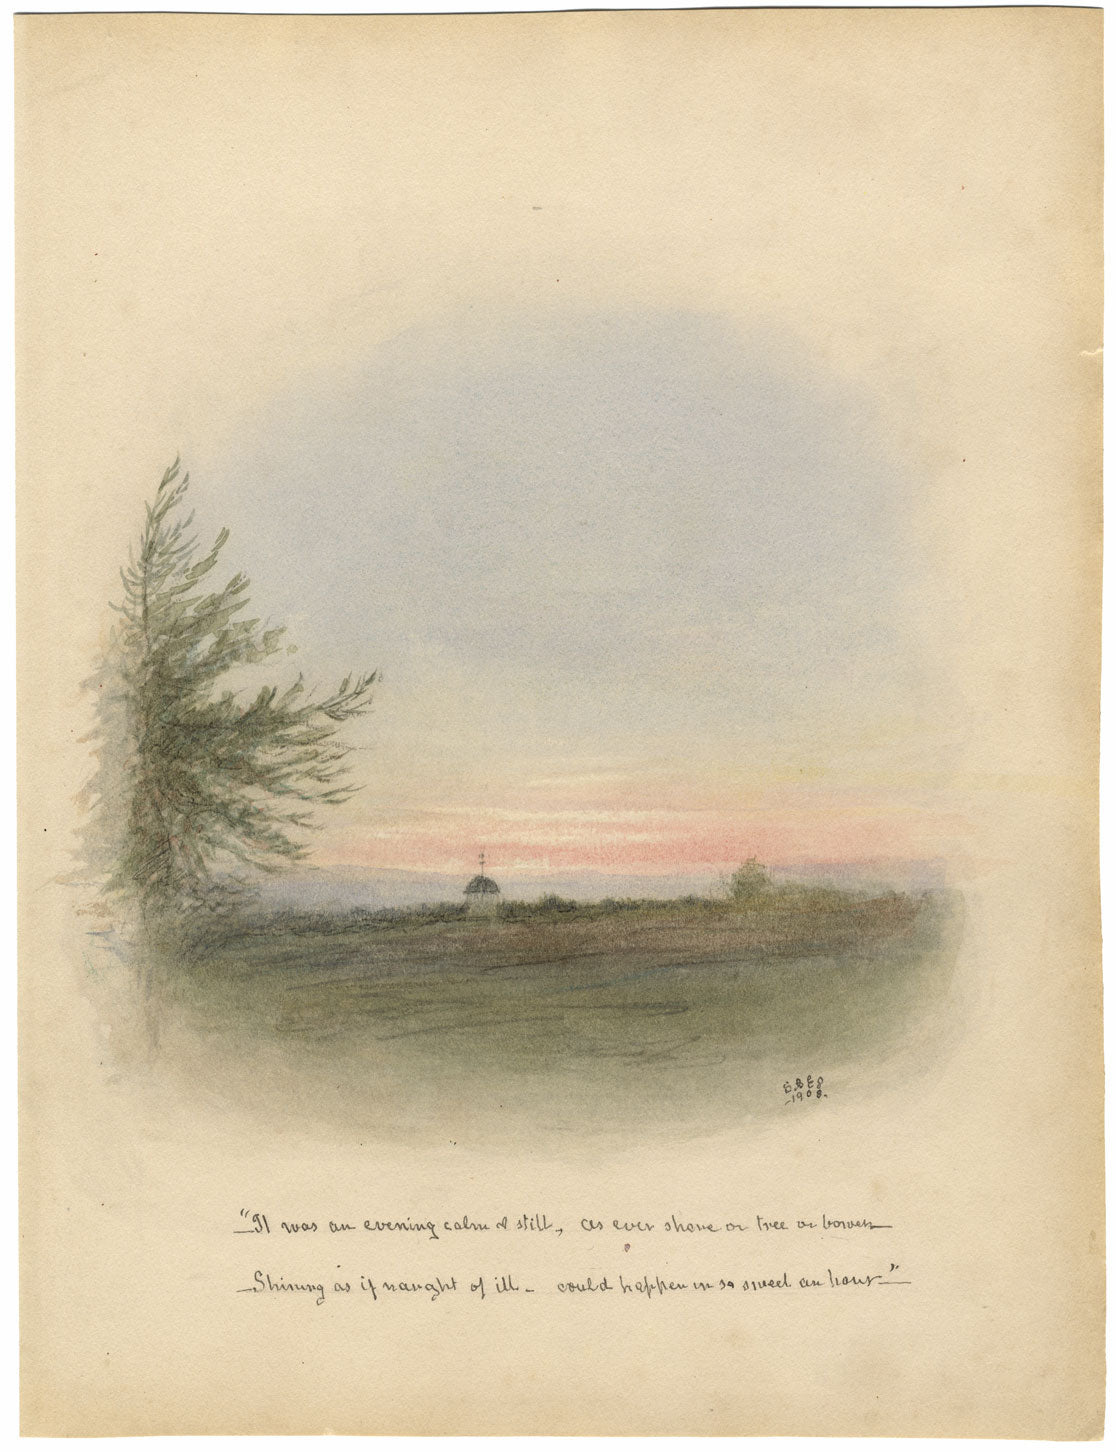 -1908-
"It was an evening calm & still, as ever shore or tree or bower—
—Shining as if naught of ill - could happen in so sweet an hour—"